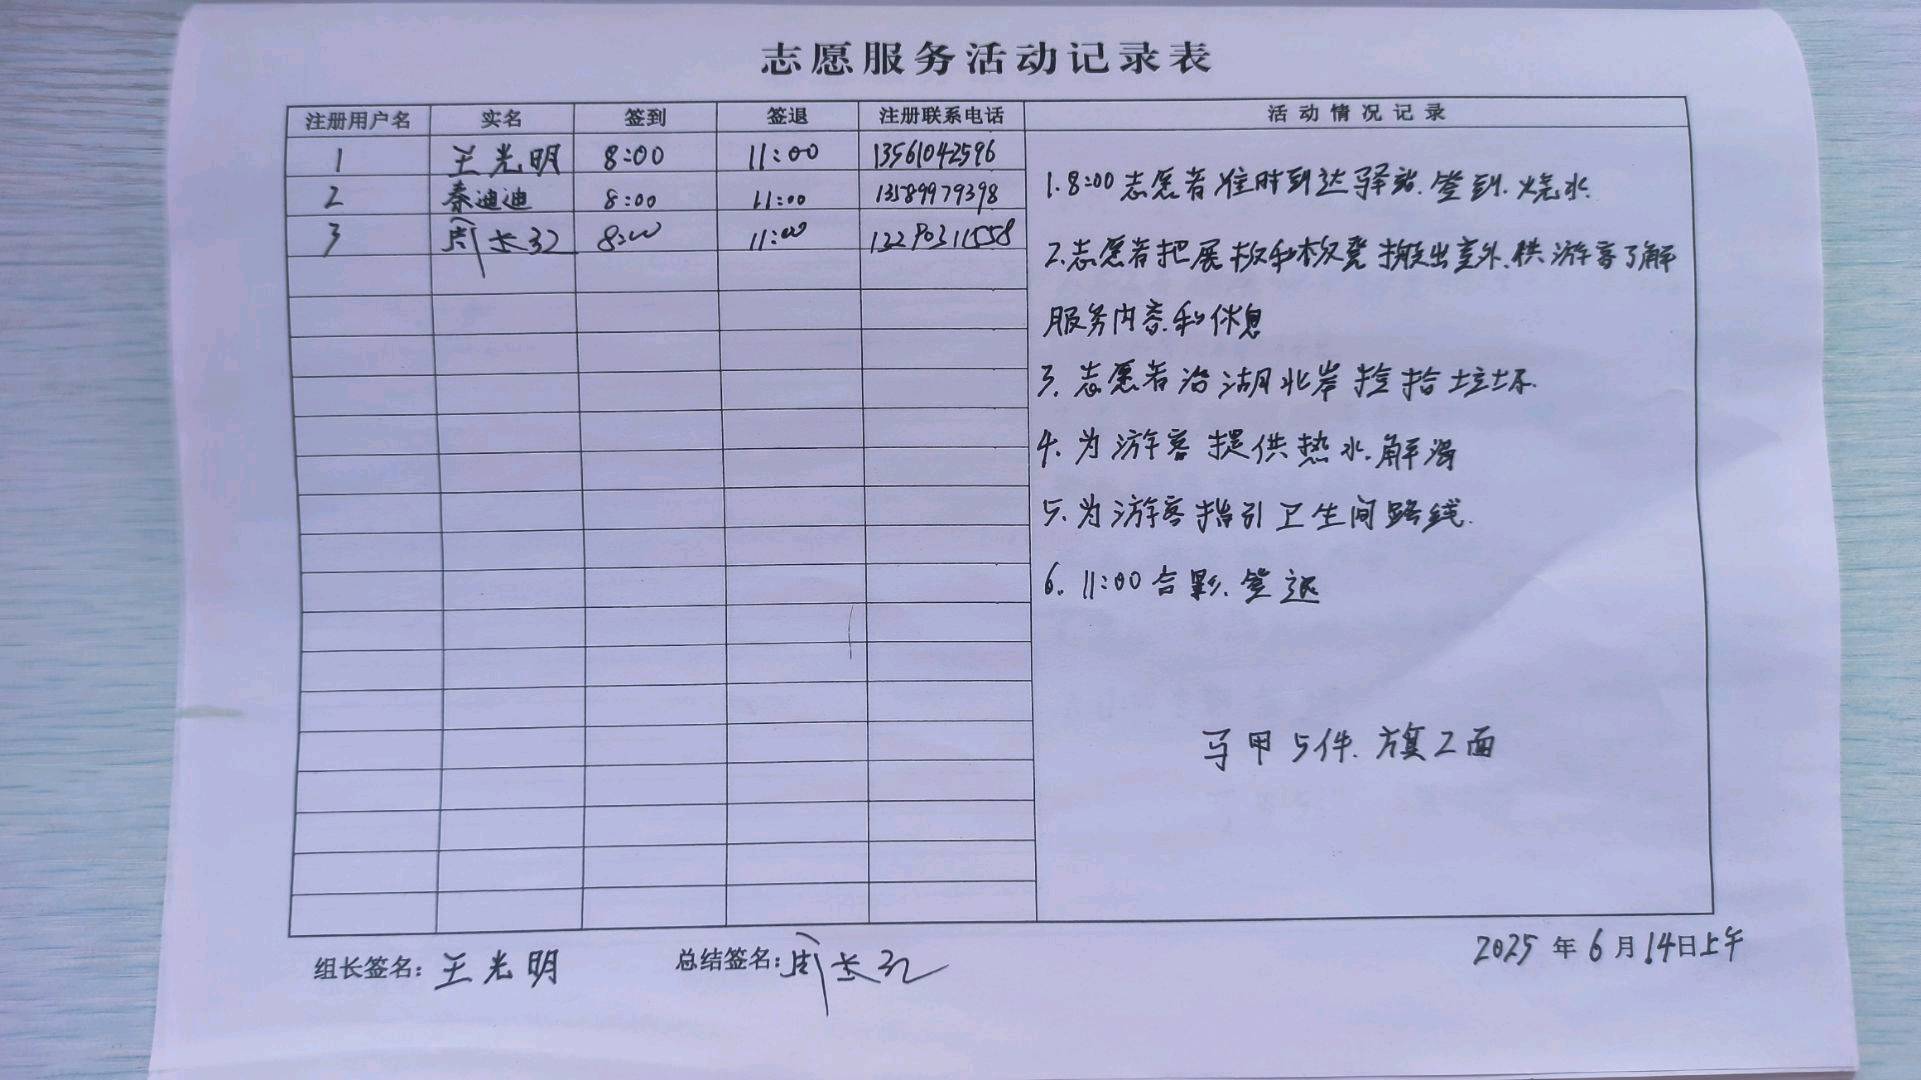 志愿服务活动记录表
注册用户名 实名 签到 签退 注册联系电话 活动情况记录
1 王光明 8:00 11:00 13561042596
2 秦迪迪 8:00 11:00 13589979398
3 周长 8:00 11:00 13290311558
1.8:00志愿者准时到达驿站.签到.烧水.
2.志愿者把展板和板凳搬出室外.供游客了解
服务内容.和休息
3.志愿者沿湖北岸捡拾垃圾.
4.为游客提供热水.解渴
5.为游客指引卫生间路线.
6.11:00合影.签退
马甲5件.旗2面
组长签名:王光明 总结签名:周长
2025年6月14日上午